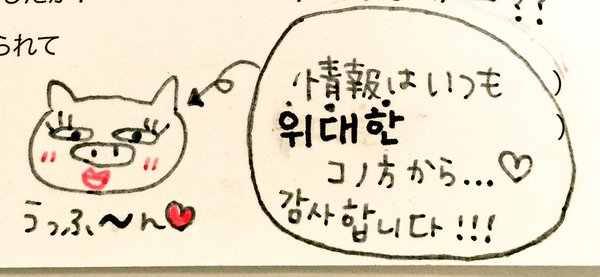 られて
??
情報はいつも
위대한
コノ方から...♡
감사합니다!!!
うっふ〜ん♥